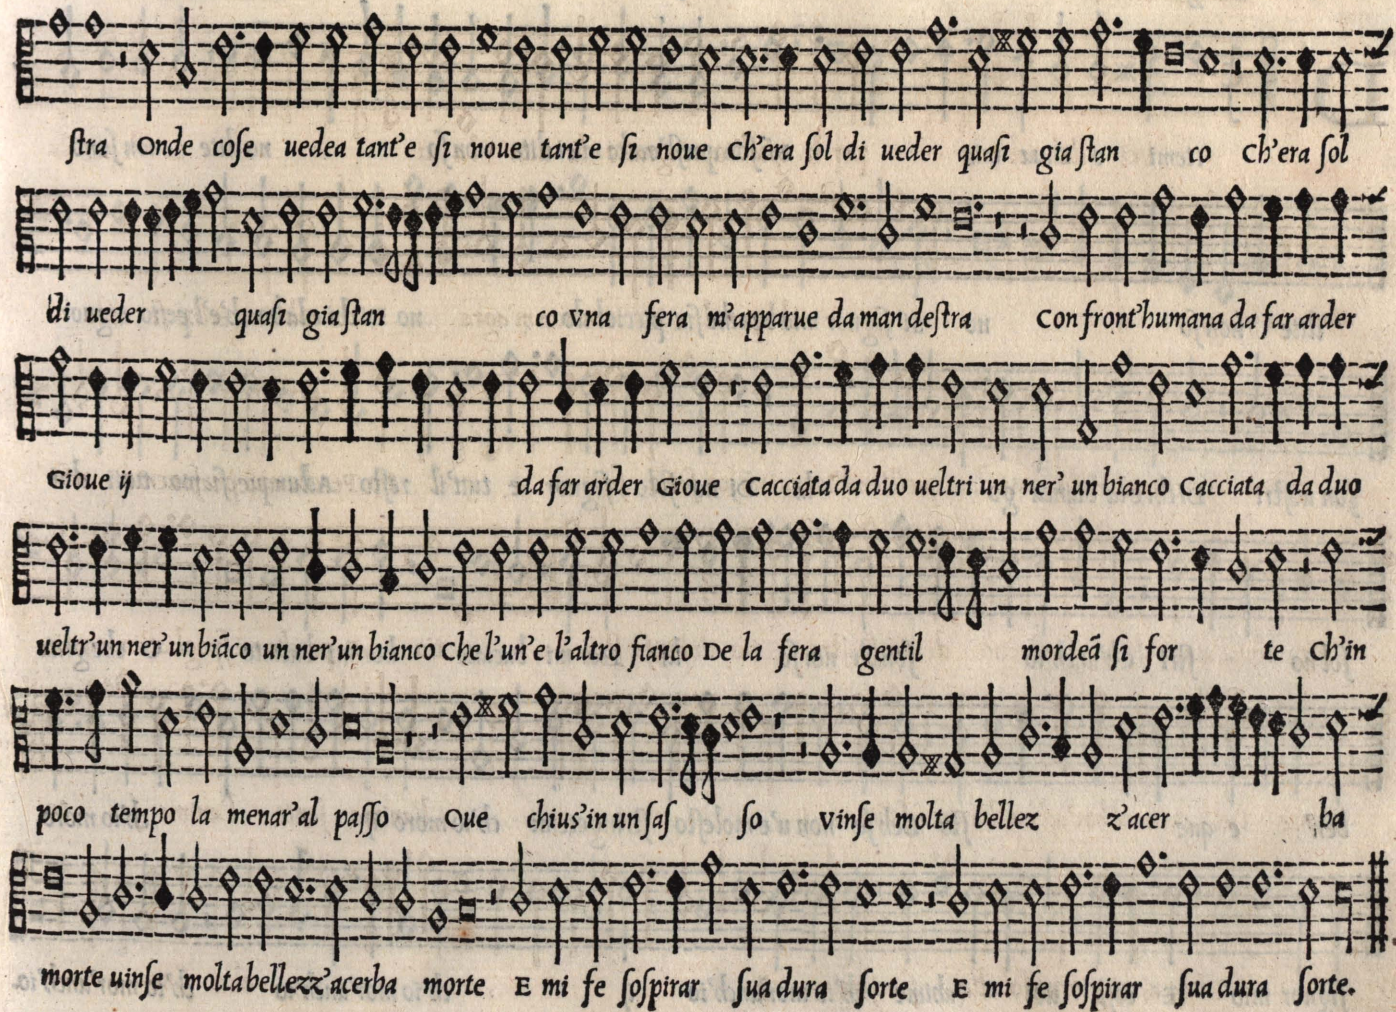 ſtra Onde coſe uedea tant'e ſi noue tant'e ſi noue Ch'era ſol di ueder quaſi gia ſtan co Ch'era ſol
di ueder quaſi gia ſtan co Vna fera m'apparue da man deſtra Con front'humana da far arder
Gioue ij da far arder Gioue Cacciata da duo ueltri un ner' un bianco Cacciata da duo
ueltr'un ner'un biāco un ner'un bianco Che l'un'e l'altro fianco De la fera gentil mordeā ſi for te Ch'in
poco tempo la menar'al paſſo Oue chius'in un ſaſ ſo Vinſe molta bellez z'acer ba
morte uinſe molta bellezz'acerba morte E mi fe ſoſpirar ſua dura ſorte E mi fe ſoſpirar ſua dura ſorte.